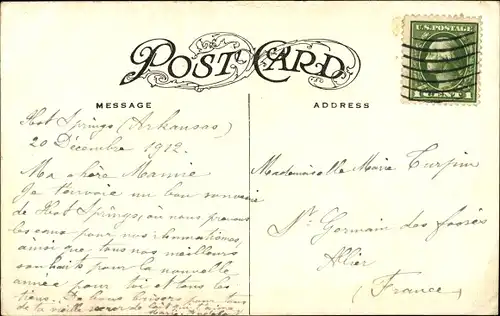 POST CARD
U.S. POSTAGE
1 CENT 1
MESSAGE
ADDRESS
Hot Springs (Arkansas)
20 Décembre 1912.
Ma chère Mamie
Je t'envoie un bon souvenir
de Hot Springs, où nous prenons
les eaux pour nos rhumatismes,
ainsi que tous nos meilleurs
souhaits pour la nouvelle
année pour toi et tous les
tiens. De bons baisers pour tous
de ta vieille soeur de lait qui t'aime
Mademoiselle Marie Turpin
St Germain des fossés
Allier
(France)